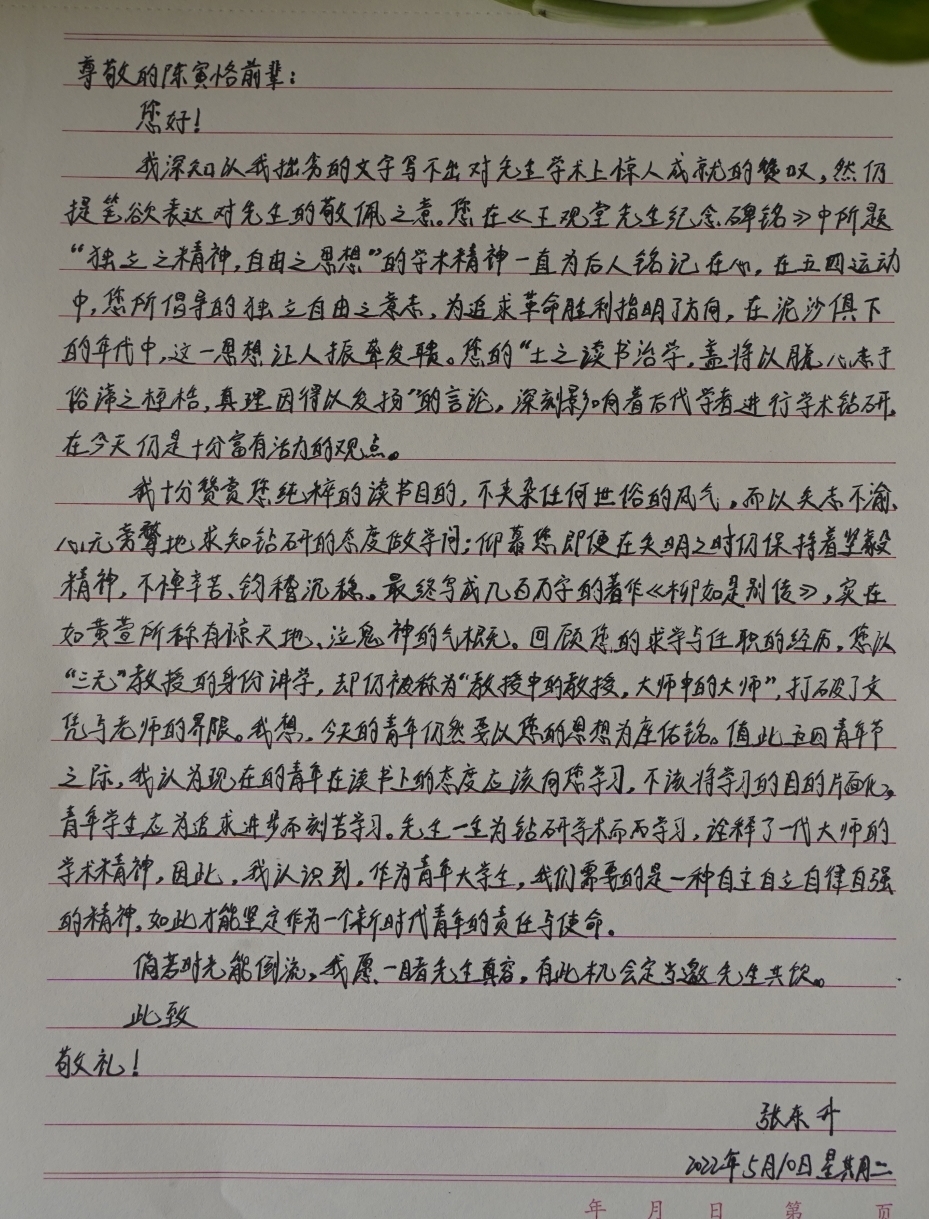 尊敬的陈寅恪前辈：
您好！
我深知以我拙劣的文字写不出对先生学术上惊人成就的赞叹，然仍
提笔欲表达对先生的敬佩之意。您在《王观堂先生纪念碑铭》中所题
“独立之精神，自由之思想”的学术精神一直为后人铭记在心，在五四运动
中，您所倡导的独立自由之意志，为追求革命胜利指明了方向，在泥沙俱下
的年代中，这一思想让人振聋发聩。您的“士之读书治学，盖将以脱心志于
俗谛之桎梏，真理因得以发扬”的言论，深刻影响着后代学者进行学术钻研，
在今天仍是十分富有活力的观点。
我十分赞赏您纯粹的读书目的，不夹杂任何世俗的风气，而以矢志不渝、
心无旁骛地求知钻研的态度做学问；仰慕您即便在失明之时仍保持着坚毅
精神，不惮辛苦、钩稽沉稳。最终写成几百万字的著作《柳如是别传》，实在
如黄萱所称有惊天地、泣鬼神的气概。回顾您的求学与任职的经历，您以
“三无”教授的身份讲学，却仍被称为“教授中的教授，大师中的大师”，打破了文
凭与老师的界限。我想，今天的青年仍然要以您的思想为座佑铭。值此五四青年节
之际，我认为现在的青年在读书上的态度应该向您学习，不该将学习的目的片面化，
青年学生应为追求进步而刻苦学习。先生一生为钻研学术而学习，诠释了一代大师的
学术精神，因此，我认识到，作为青年大学生，我们需要的是一种自主自立自律自强
的精神，如此才能坚定作为一个新时代青年的责任与使命。
倘若时光能倒流，我愿一睹先生真容，有此机会定当邀先生共饮。
此致
敬礼！
张东升
2022年5月10日星期二
年 月 日 第 页